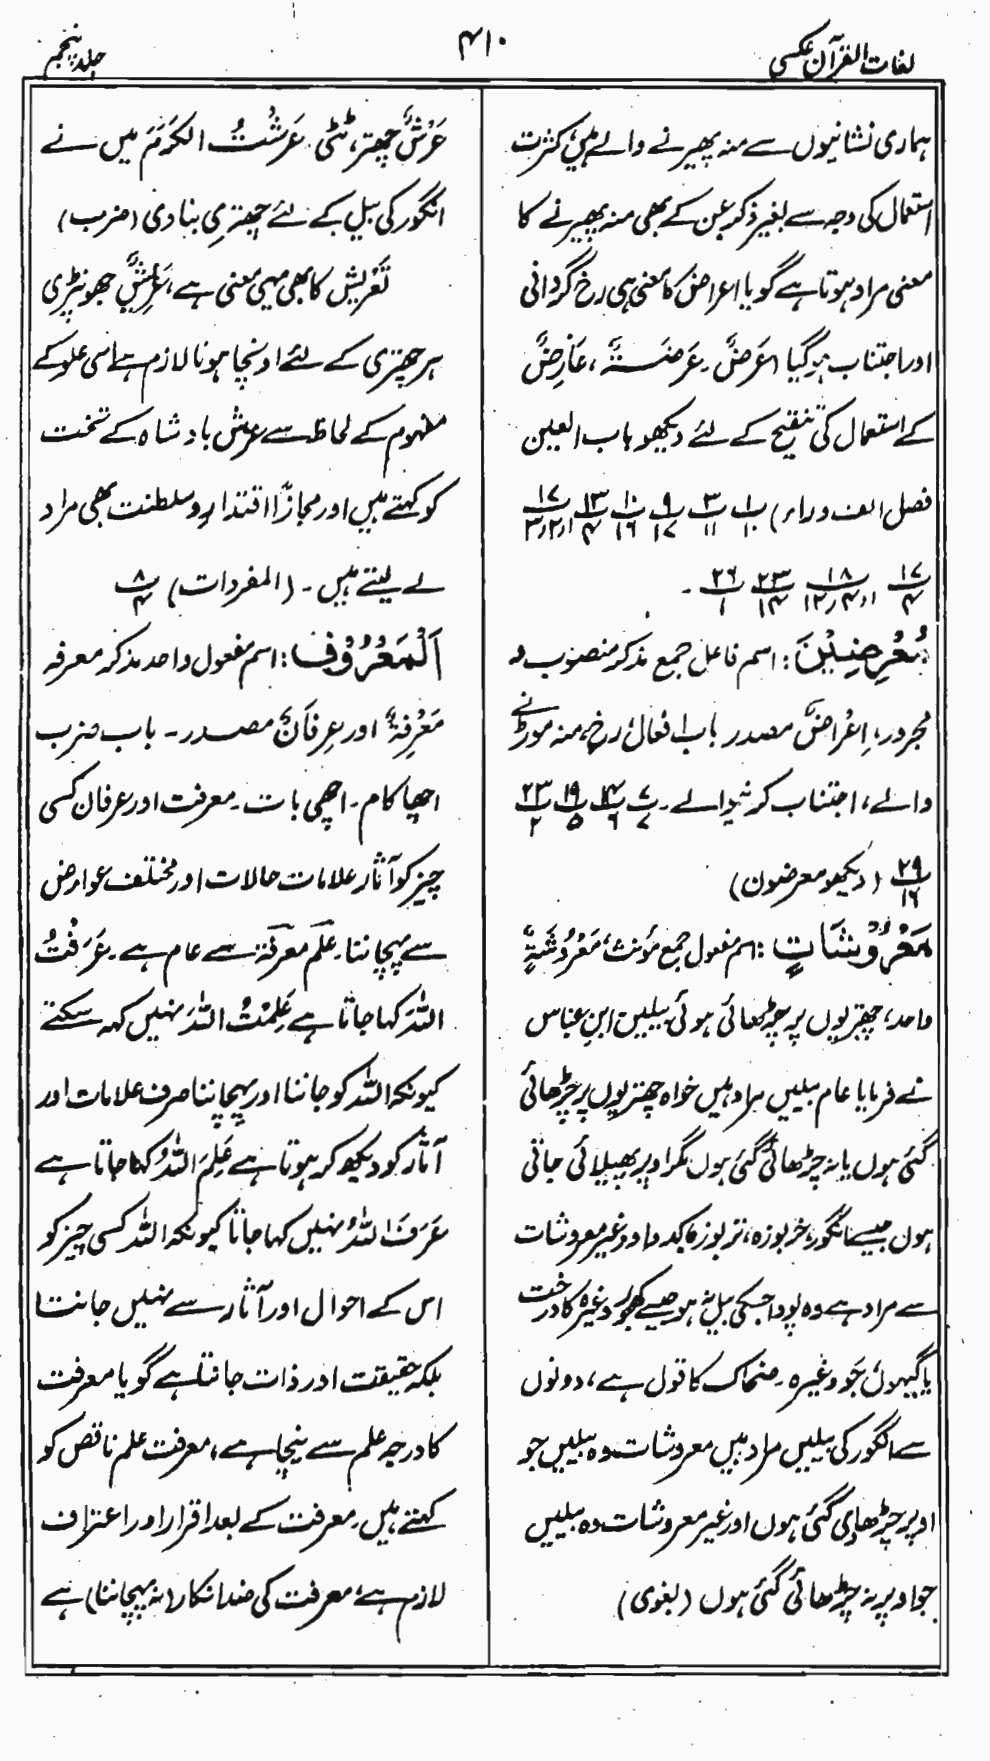 لغات القرآن عکسی
۴۱۰
جلد پنجم
ہماری نشانیوں سے منہ پھیرنے والے ہیں، کثرت
استعمال کی وجہ سے بغیر ذکر عن کے بھی منہ پھیرنے کا
معنی مراد ہوتا ہے گویا اعراض کا معنی ہی رخ گردانی
اور اجتناب ہو گیا (عَرَضٌ۔ عَرَضَةٌ، عَارِضٌ
کے استعمال کی تنقیح کے لئے دیکھو باب العین
فصل الف وراء) ۱/۱۰ ۳/۱۱ ۹/۱۷ ۱۰/۱۶ ۱۳/۴ ۱۷/۱ر۲ر۳
۱۷/۴ ۱۸/۱ر۴ر۱۲ ۲۳/۱۴ ۲۶/۱ ۔
مُعْرِضِیْنَ: اسم فاعل جمع مذکر منصوب و
مجرور، اِعْرَاضٌ مصدر باب افعال رخ، منہ موڑنے
والے، اجتناب کرنے والے۔ ۷/۷ ۱۴/۶ ۱۹/۵ ۲۳/۲
۲۹/۱۶ (دیکھو معرضون)
مَعْرُوْشَاتٍ: اسم مفعول جمع مؤنث، مَعْرُوْشَۃٌ
واحد، چھتریوں پر چڑھائی ہوئی بیلیں ابن عباس
نے فرمایا عام بیلیں مراد ہیں خواہ چھتریوں پر چڑھائی
گئی ہوں یا نہ چڑھائی گئی ہوں مگر اوپر پھیلائی جاتی
ہوں جیسے انگور، خربوزہ، تربوز، کدو اور غیر معروشات
سے مراد ہے وہ پودا جسکی بیل نہ ہو جیسے کھجور وغیرہ کا درخت
یا گیہوں، جَو وغیرہ۔ ضحاک کا قول ہے، دونوں
سے انگور کی بیلیں مراد ہیں معروشات وہ بیلیں جو
اوپر چڑھادی گئی ہوں اور غیر معروشات وہ بیلیں
جو اوپر نہ چڑھائی گئی ہوں (بغوی)
عَرْشٌ چھپر، ٹٹی، عَرَشْتُ الکَرَمَ میں نے
انگور کی بیل کے لئے چھتری بنادی (ضرب)
تَعْرِیْش کا بھی یہی معنی ہے، عَرِیْشٌ جھونپڑی
ہر چھتری کے لئے اونچا ہونا لازم ہے اسی علو کے
مفہوم کے لحاظ سے عرش بادشاہ کے تخت
کو کہتے ہیں اور مجازًا اقتدار و سلطنت بھی مراد
لے لیتے ہیں۔ (المفردات) ۸/۴
اَلْمَعْرُوْف: اسم مفعول واحد مذکر معرفہ
مَعْرِفَۃٌ اور عِرفَانٌ مصدر۔ باب ضرب
اچھا کام۔ اچھی بات۔ معرفت اور عرفان کسی
چیز کو آثار علامات حالات اور مختلف عوارض
سے پہچاننا۔ علم معرفۃ سے عام ہے۔ عَرَفْتُ
اللّٰہَ کہا جاتا ہے عَلِمْتُ اللّٰہَ نہیں کہہ سکتے
کیونکہ اللّٰہ کو جاننا اور پہچاننا صرف علامات اور
آثار کو دیکھ کر ہوتا ہے عَلِمَ اللّٰہُ کہا جاتا ہے
عَرَفَ اللّٰہُ نہیں کہا جاتا کیونکہ اللّٰہ کسی چیز کو
اس کے احوال اور آثار سے نہیں جانتا
بلکہ حقیقت اور ذات جانتا ہے گویا معرفت
کا درجہ علم سے نیچا ہے، معرفت علم ناقص کو
کہتے ہیں۔ معرفت کے بعد اقرار اور اعتراف
لازم ہے، معرفت کی ضد انکار (نہ پہچاننا) ہے